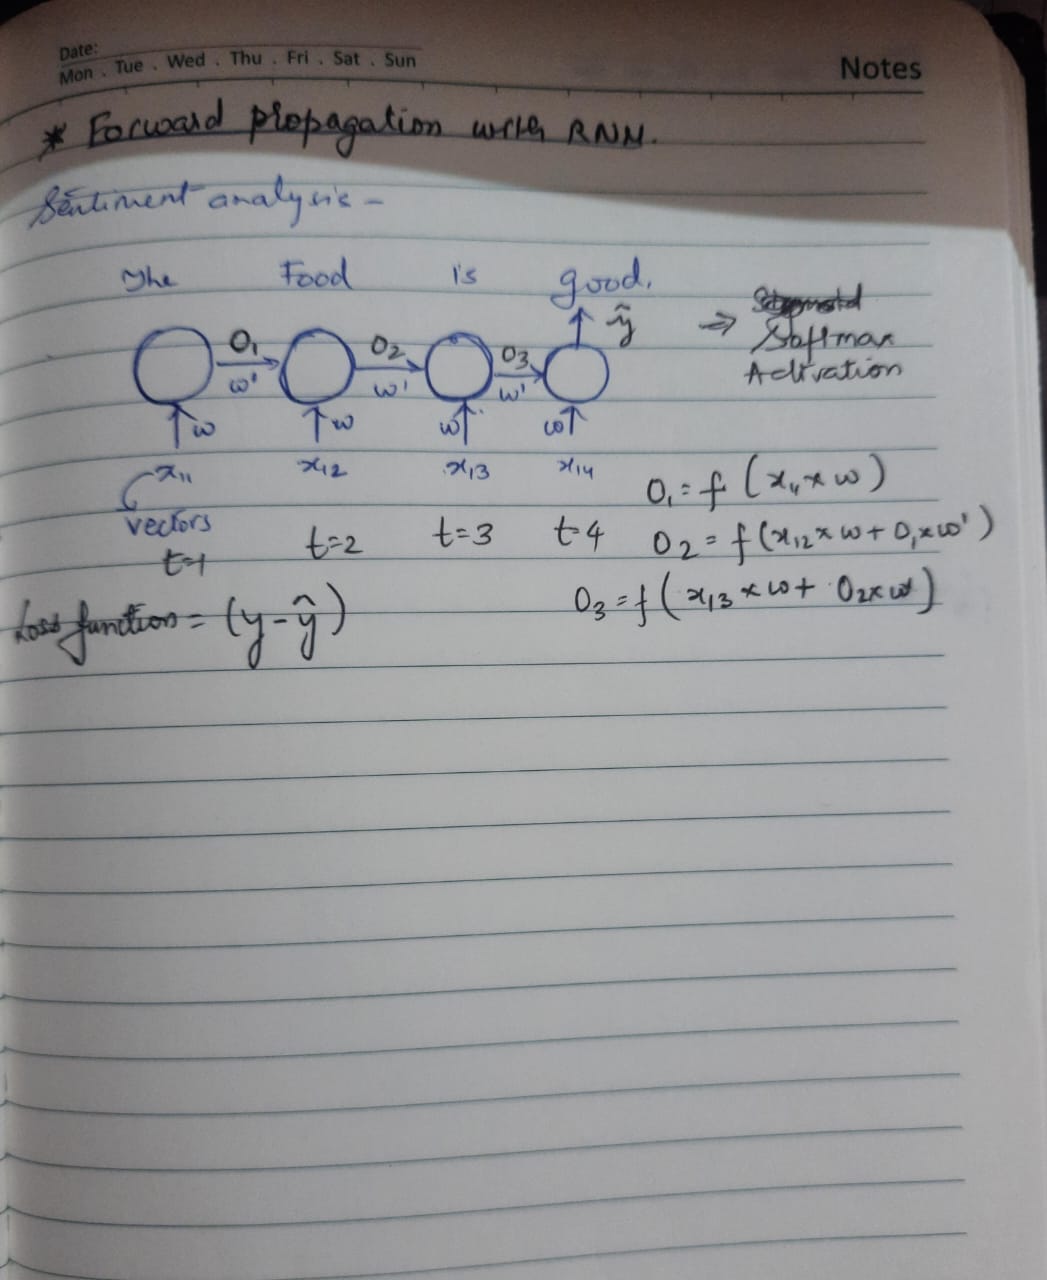 Date:
Mon . Tue . Wed . Thu . Fri . Sat . Sun
Notes
* Forward propagation with RNN.
Sentiment analysis -
The Food is good.
ŷ
⇒ Softmax
Activation
O₁ O₂ O₃
w' w' w'
w w w w
x₁₁ x₁₂ x₁₃ x₁₄
vectors
t=1 t=2 t=3 t=4
O₁ = f (x₁₁ x w)
O₂ = f (x₁₂ x w + O₁ x w')
O₃ = f ( x₁₃ x w + O₂ x w')
Loss function = (y - ŷ)